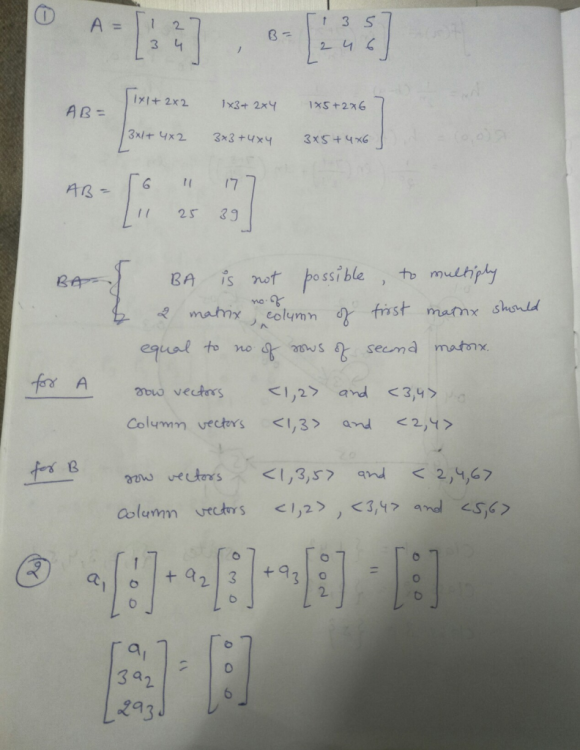 ① A = [1 2; 3 4] , B = [1 3 5; 2 4 6]
AB = [1x1+2x2 1x3+2x4 1x5+2x6; 3x1+4x2 3x3+4x4 3x5+4x6]
AB = [6 11 17; 11 25 39]
BA = { BA is not possible, to multiply
2 matrix, no of column of first matrix should
equal to no of rows of second matrix
for A row vectors <1,2> and <3,4>
column vectors <1,3> and <2,4>
for B row vectors <1,3,5> and <2,4,6>
column vectors <1,2>, <3,4> and <5,6>
② a₁ [1; 0; 0] + a₂ [0; 3; 0] + a₃ [0; 0; 2] = [0; 0; 0]
[a₁; 3a₂; 2a₃] = [0; 0; 0]